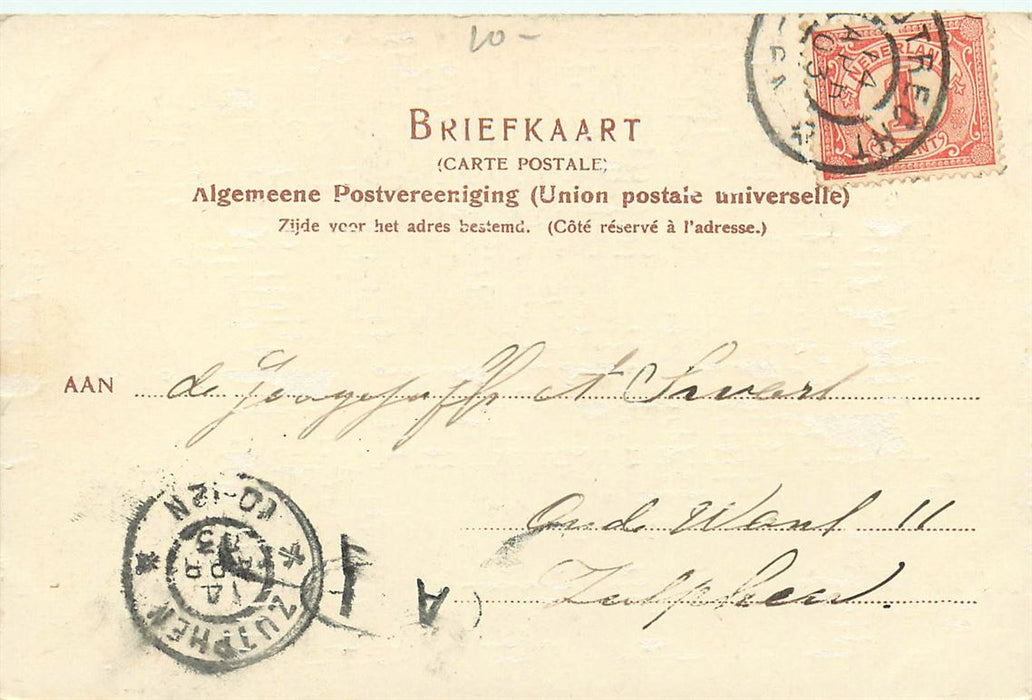 10-
UTRECHT
14 APR 03
NEDERLAND
1
CENT
BRIEFKAART
(CARTE POSTALE)
Algemeene Postvereeniging (Union postale universelle)
Zijde voor het adres bestemd. (Côté réservé à l'adresse.)
AAN de A Swart
Oude Wand 11
Zutphen
ZUTPHEN
14 APR 03
10-12N
A